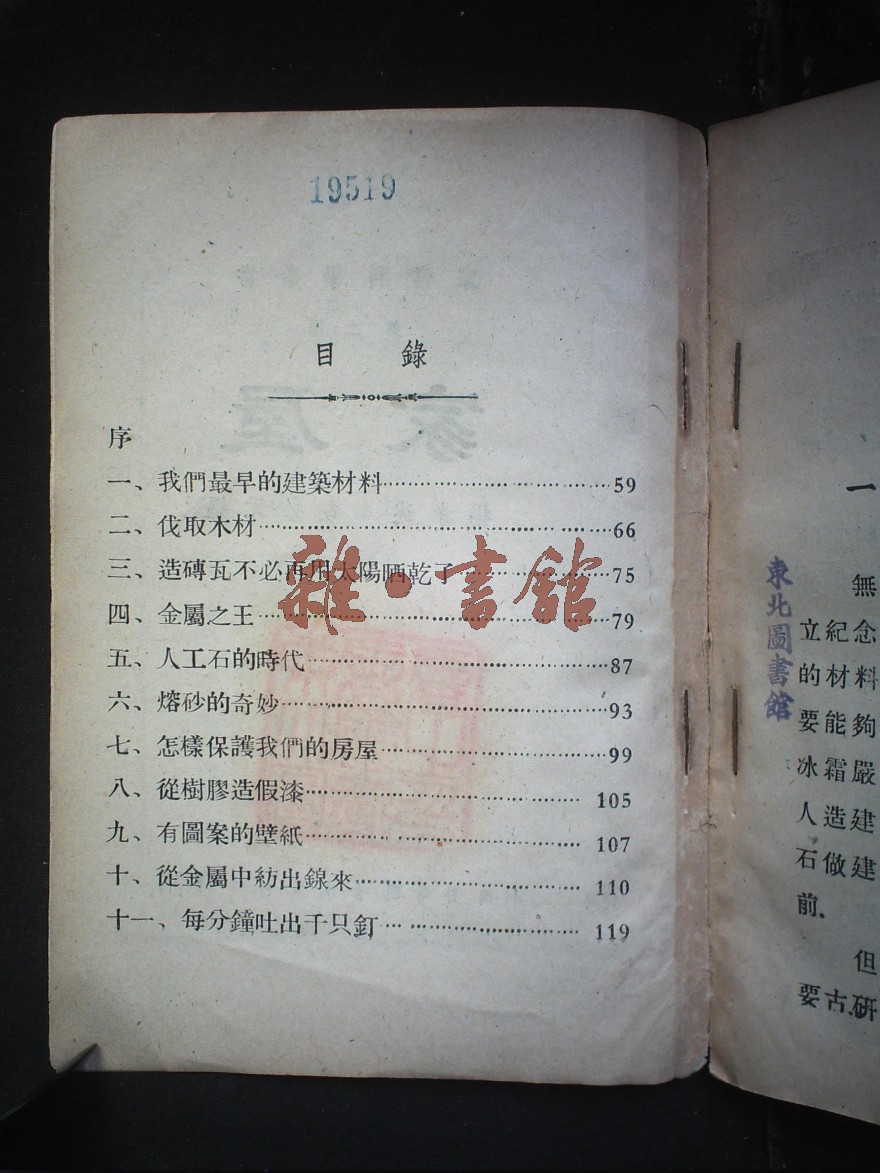 19519
目錄
序
一、我們最早的建築材料……59
二、伐取木材……66
三、造磚瓦不必再用太陽晒乾了……75
四、金屬之王……79
五、人工石的時代……87
六、熔砂的奇妙……93
七、怎樣保護我們的房屋……99
八、從樹膠造假漆……105
九、有圖案的壁紙……107
十、從金屬中紡出線來……110
十一、每分鐘吐出千只釘……119
雜·書館
家屋
東北圖書館
一
無
立紀念
的材料
要能夠
冰霜嚴
人造建
石做建
前、
但
要古研